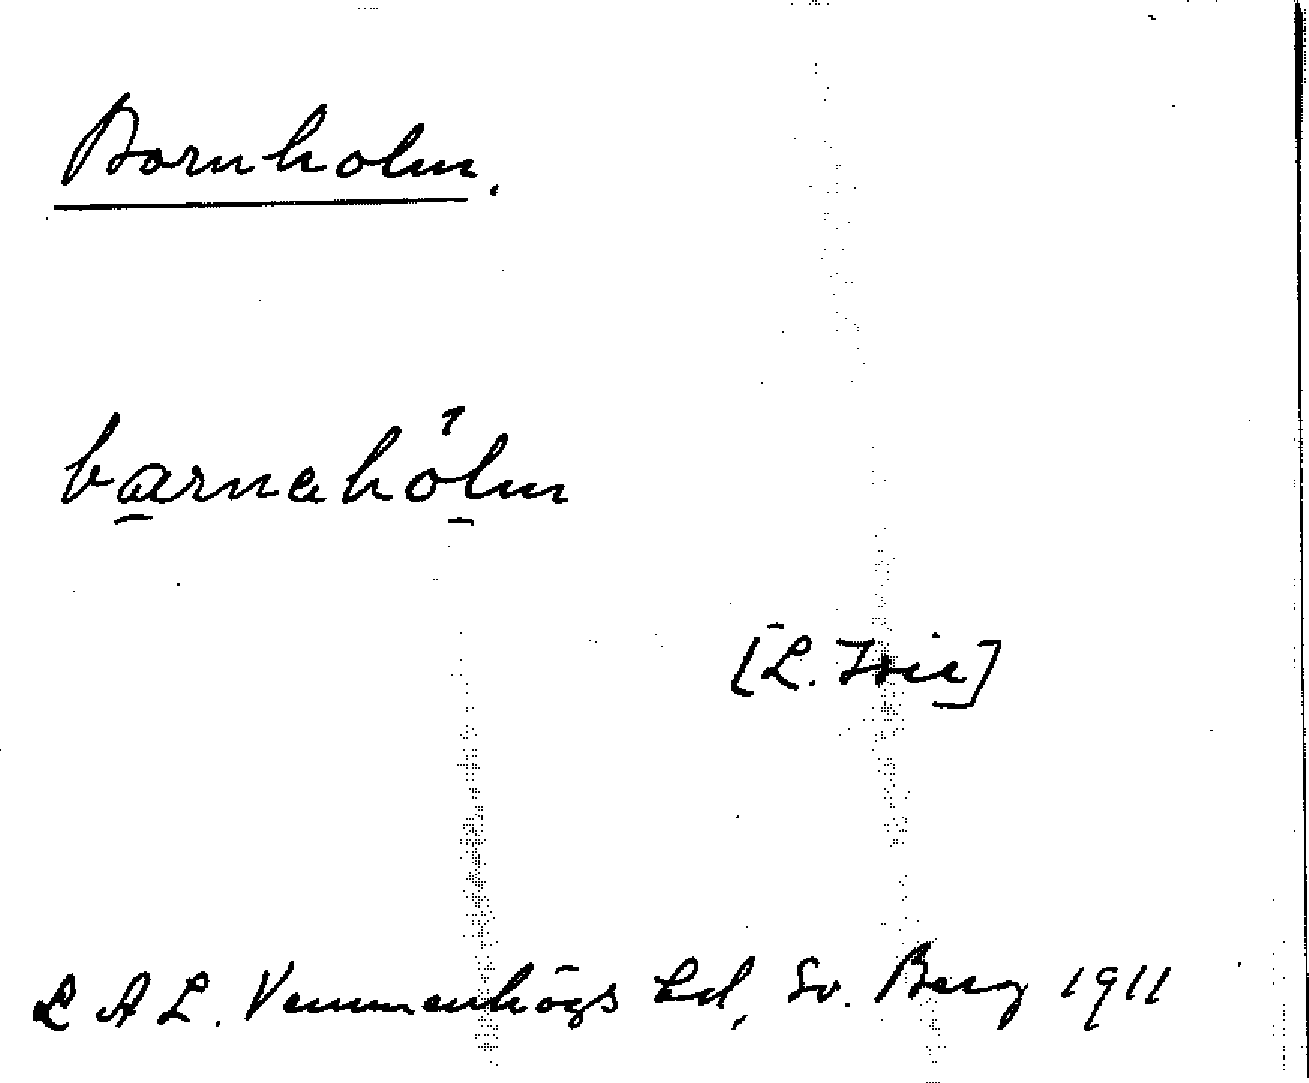 Bornholm.
barnahölm
[L. Isie]
L A L. Vemmenhögs hd, Sv. Berg 1911